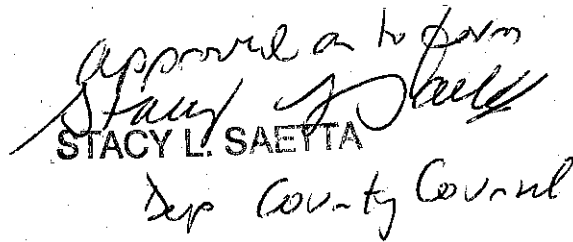 approved as to form
Stacy L Saetta
STACY L. SAETTA
Dep County Counsel